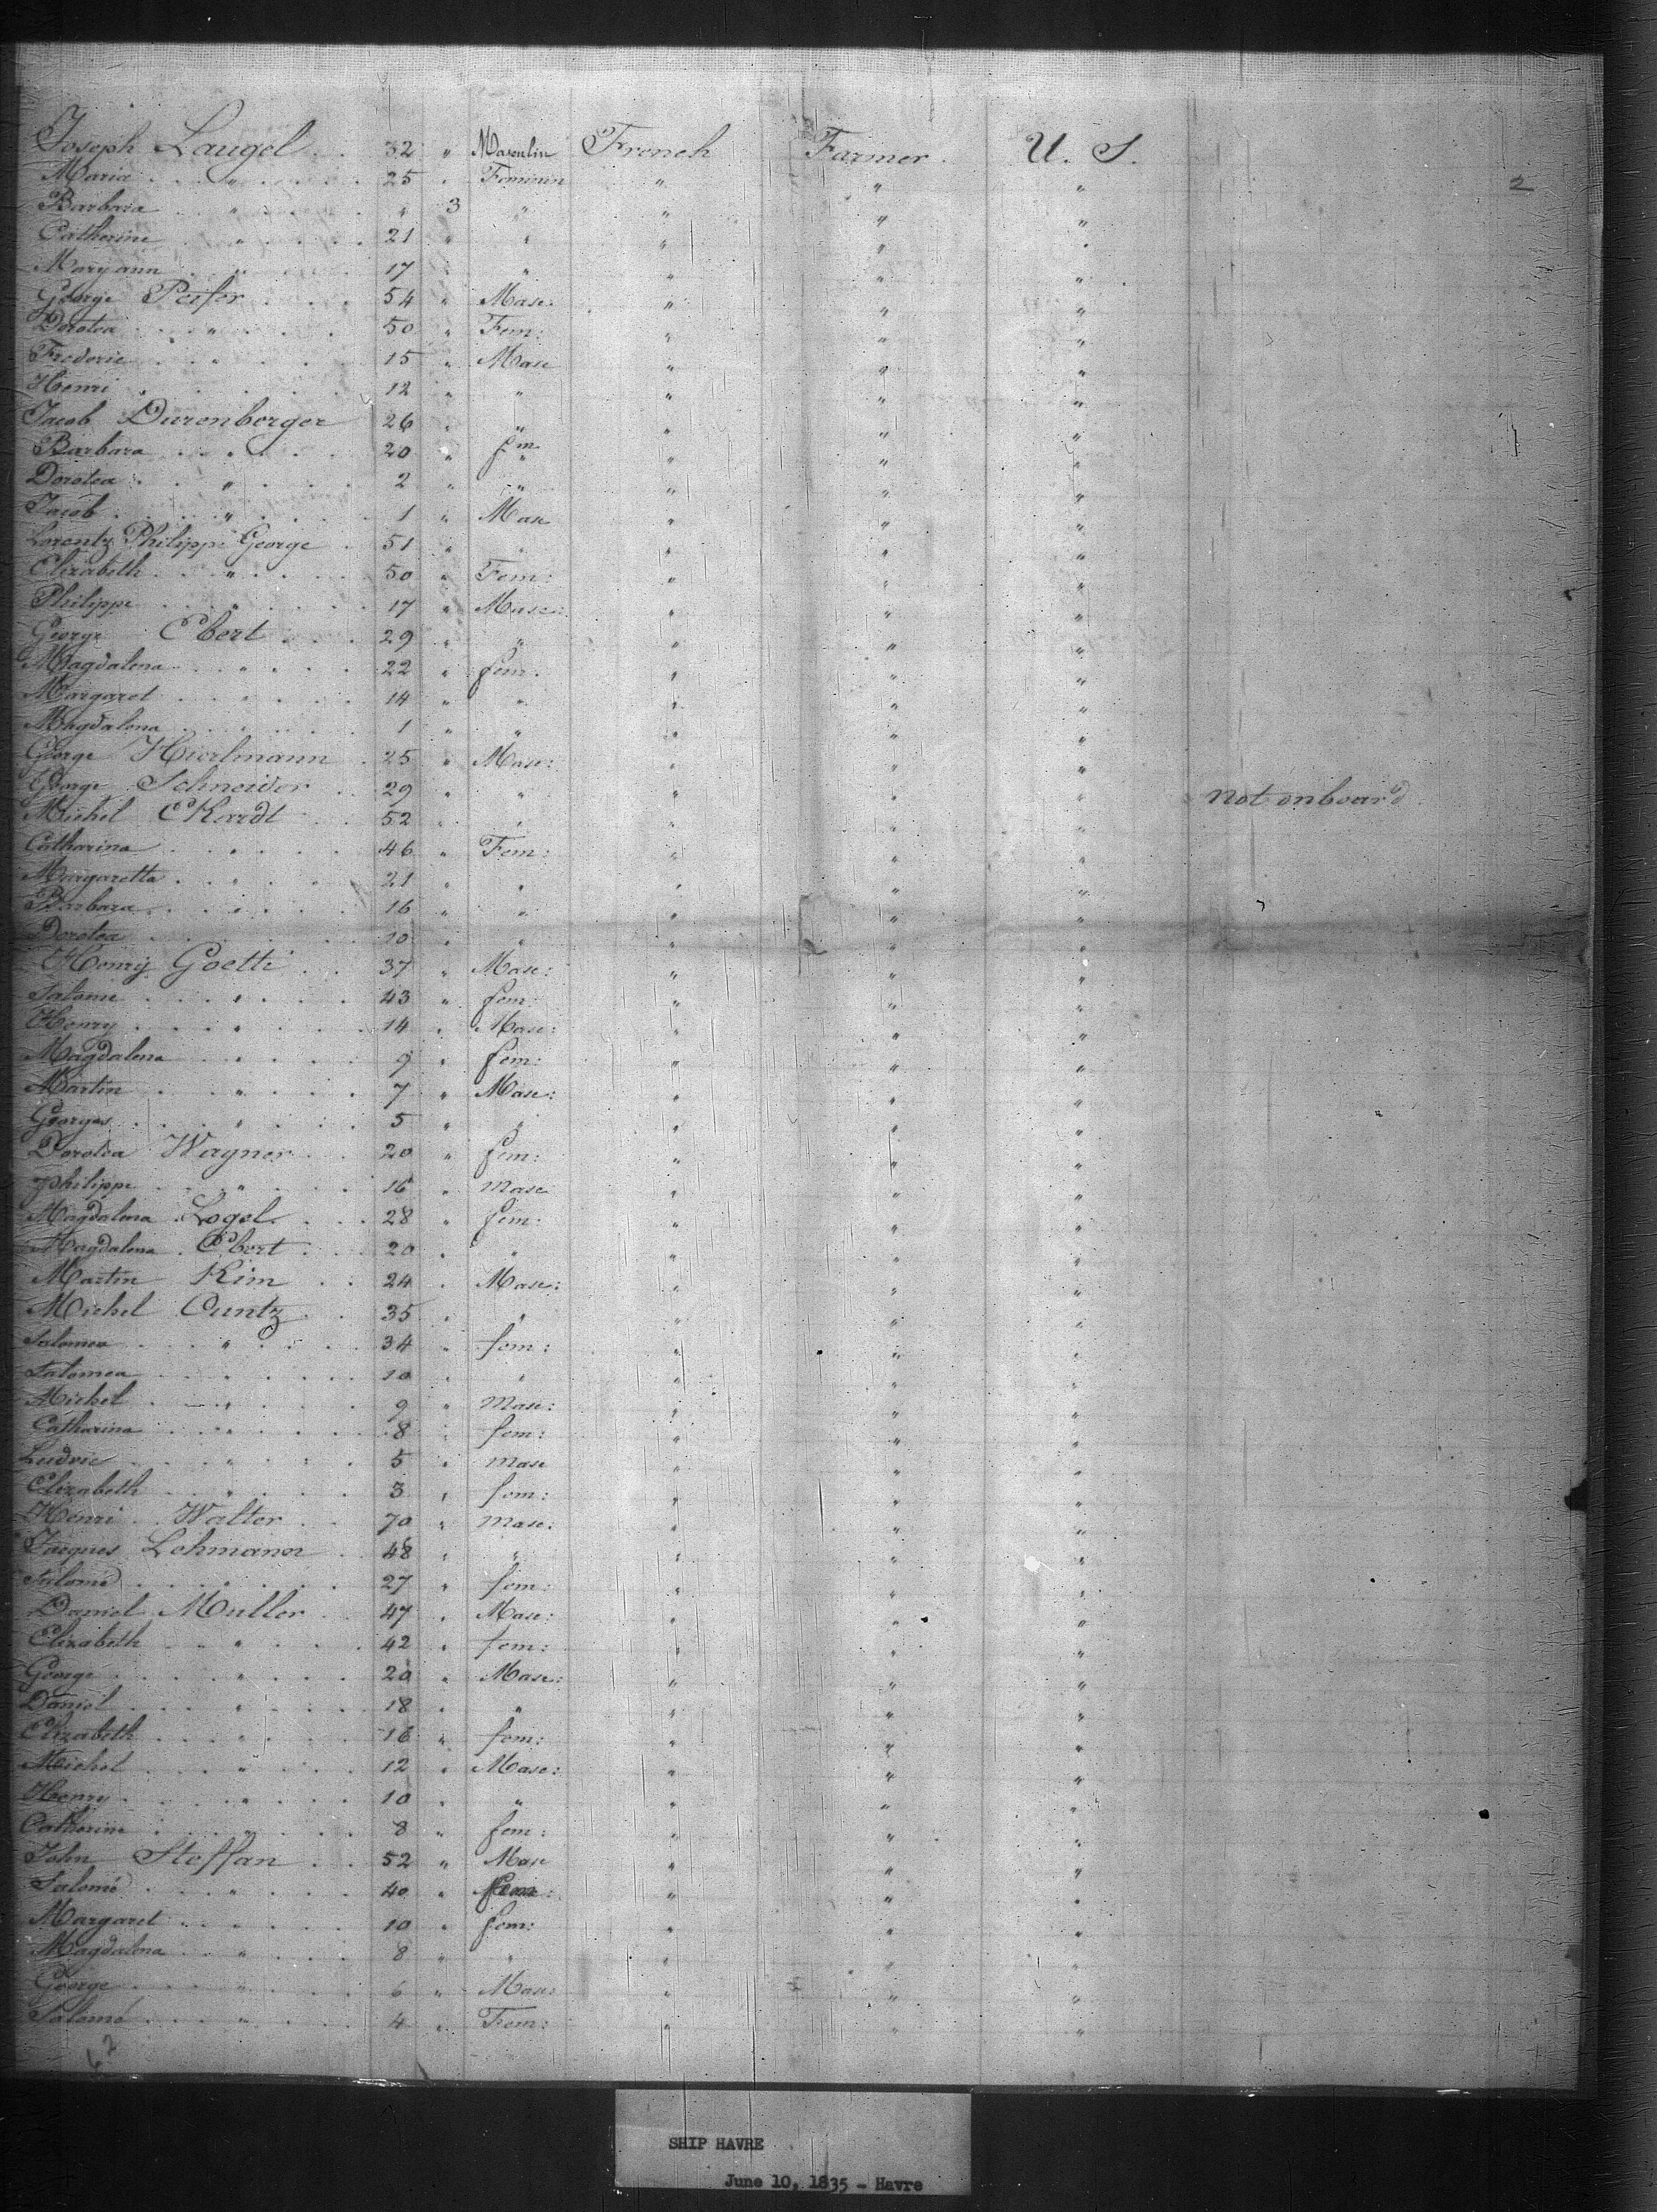 Joseph Laugel . . 32 " Masculin French Farmer. U. S.
Maria . . " . . . . 25 . Feminin " " " 2
Barbara . . " . . . . " 3 " " " "
Catherine . . " . . . . 21 " " " " "
Maryann . . " . . . . 17 " " " " "
George Peifer . . . 54 " Masc: " " "
Dorotea . . . " . . . 50 " Fem: " " "
Frederic . . " . . . 15 " Masc " " "
Henri . . . . . . . 12 " " " " "
Jacob Durenberger 26 " " " " "
Barbara . . " . . . 20 " fem " " "
Dorotea . . " . . . 2 " " " " "
Jacob . . . " . . . 1 " Masc " " "
Lorentz Philippe George . 51 " " " " "
Elizabeth . . " . . . . 50 " Fem: " " "
Philippe . . " . . . . 17 " Masc: " " "
George Ebert . . . 29 " " " " "
Magdalena . . " . . . 22 " fem. " " "
Margaret . . " . . . 14 " " " " "
Magdalena . . " . . . 1 " " " " "
George Hierlmann . 25 " Masc: " " "
George Schneider . . 29 " " " " " not onboard
Michel EKardt . . 52 " " " " "
Catharina . . " . . . 46 " Fem: " " "
Margaretta . . " . . . 21 " " " " "
Barbara . . " . . . 16 " " " " "
Dorotea . . . . . . 10 " " " " "
Henry Goetti . . 37 " Masc: " " "
Salome . . . " . . . 43 " fem: " " "
Henry . . . " . . . 14 " Masc: " " "
Magdalena . . " . . . 9 " fem: " " "
Martin . . . " . . . 7 " Masc: " " "
Georges . . " . . . 5 " " " " "
Dorotea Wagner . . 20 " fem: " " "
philippe . . " . . . 16 " masc " " "
Magdalena Logel . . . 28 " fem: " " "
Magdalena . Ebert . . . 20 " " " " "
Martin Kim . . 24 " Masc: " " "
Michel Cuntz . . 35 " " " " "
Salomea . . " . . . 34 " fem: " " "
Salomea . . " . . . 10 " " " " "
Michel . . . " . . . 9 " Masc: " " "
Catharina . . " . . . 8 " fem: " " "
Ludvic . . . " . . . 5 " masc " " "
Elizabeth . . " . . . 3 " fem: " " "
Henri . . Walter . . 70 " masc: " " "
Jacques Lohmaner . 48 " " " " "
Salomé . . . . . . 27 " fem: " " "
Daniel Muller . . 47 " Masc: " " "
Elizabeth . . " . . . 42 " fem: " " "
George . . . " . . . 20 " Masc: " " "
Daniel . . . " . . . 18 " " " " "
Elizabeth . . " . . . 16 " fem: " " "
Michel . . . " . . . 12 " Masc: " " "
Henry . . . " . . . 10 " " " " "
Catherine . . " . . . 8 " fem: " " "
John Steffan . . 52 " Masc " " "
Salomé . . . " . . . 40 " fem: " " "
Margaret . . " . . . 10 " fem: " " "
Magdalena . . " . . . 8 " " " " "
George . . . " . . . 6 " Masc: " " "
Salomé . . . " . . . 4 " Fem: " " "
62
SHIP HAVRE
June 10, 1835 - Havre